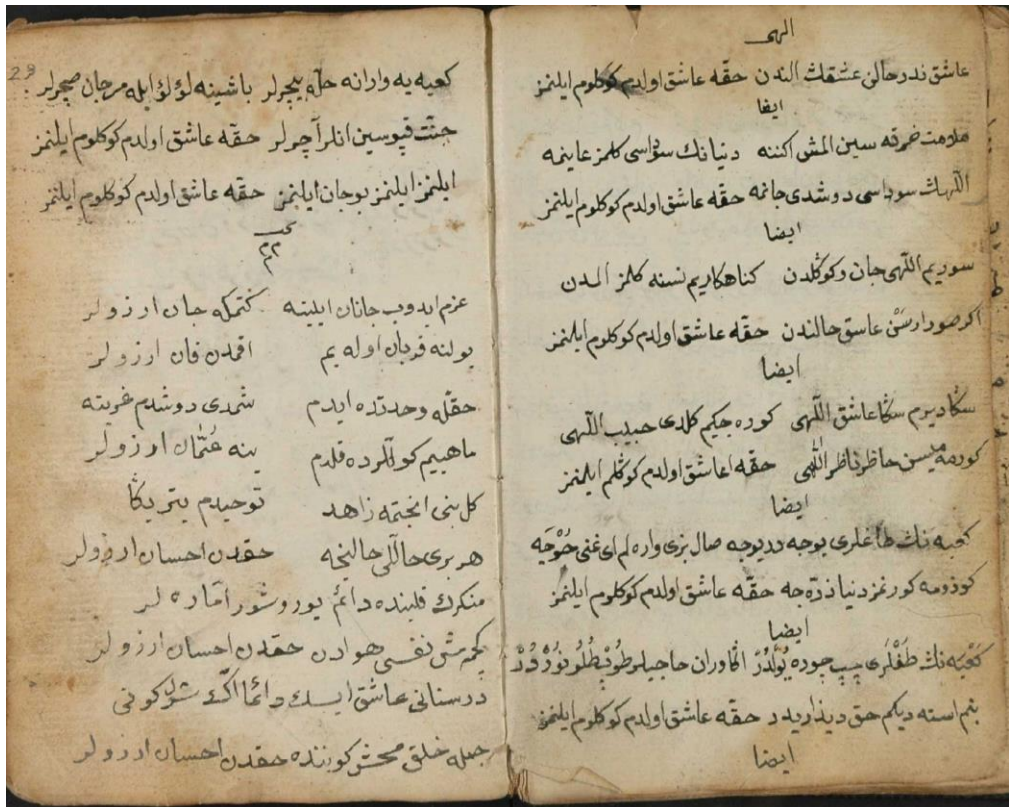 الهی
عاشق ندر حالی عشقك الندن حقه عاشق اولدم كوكلوم ایلنمز
ایضا
ملامت خرقه سین المش اكننه دنیانك سوداسی كلمز عاینمه
اللهك سوداسی دوشدی جانمه حقه عاشق اولدم كوكلوم ایلنمز
ایضا
سوریم اللهی جان وكوكلدن كناهكاریم نسنه كلمز المدن
اكر صورارسن عاسق حالندن حقه عاشق اولدم كوكلوم ایلنمز
ایضا
سكا دیرم سكا عاشق اللهی كوره جكیم كلدی حبیب اللهی
كورمه میسن حاظر ناظر اللهی حقه اعاشق اولدم كوكلم ایلنمز
ایضا
كعبه نك طاغلری یوجه در یوجه صال بزی واره لم ای غنی خوجه
كوزومه كورنمز دنیا ذره جه حقه عاشق اولدم كوكلوم ایلنمز
ایضا
كعبه نك طغلری چپ چوره یولدر اكا وران حاجیلر طوپ طلو نوردر
بنم استه دیكم حق دیداریدر حقه عاشق اولدم كوكلوم ایلنمز
ایضا
23
كعبه یه وارانه حله بیچرلر باشینه لؤلؤ ایله مرجان صچرلر
جنت قپوسین انلر آچرلر حقه عاشق اولدم كوكلوم ایلنمز
ایلنمز ایلنمز بو جان ایلنمز حقه عاشق اولدم كوكلوم ایلنمز
عزم ایدوب جانان ایلینه كتمكه جان ارزولر
یولنه قربان اوله یم اقمدن قان ارزولر
حقله وحدتده ایدم شمدی دوشدم غربته
ماهییم كوللرده قلدم ینه عمان ارزولر
كل بنی انجتمه زاهد توحیدم یتر بكا
هر بری حاللی حالنجه حقدن احسان ارزولر
منكرك قلبنده دائم یورو شور اماره لر
كچمه مش نفسی هوادن حقدن احسان ارزولر
درسنانی عاشق ایسك دائما اكك شول كونی
جمله خلق محشر كوننده حقدن احسان ارزولر